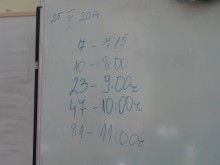 25 V 2014
7 - 7.15
10 - 8:00
23 - 9:00ч
47 - 10:00ч
81 - 11:00ч